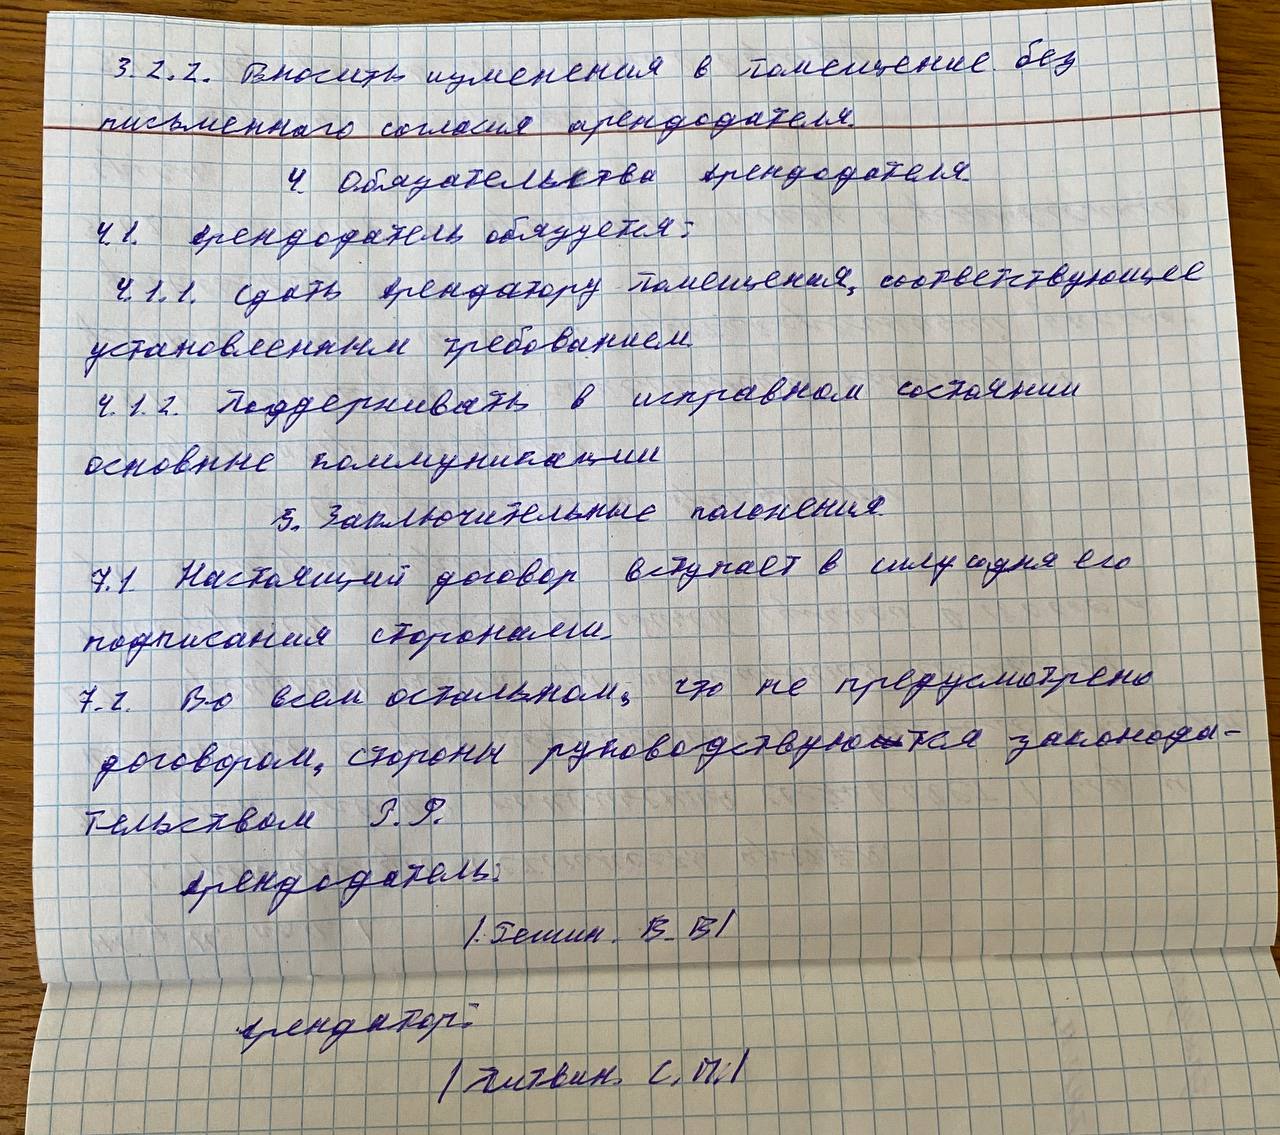 3.2.2. Вносить изменения в помещение без
письменного согласия арендодателя.
4. Обязательства арендодателя.
4.1. Арендодатель обязуется:
4.1.1. Сдать арендатору помещения, соответствующее
установленным требованием.
4.1.2. Поддерживать в исправном состоянии
основные коммуникации
5. Заключительные положения.
7.1. Настоящий договор вступает в силу со дня его
подписания сторонами.
7.2. Во всем остальном, что не предусмотрено
договором, стороны руководствуются законода-
тельством Р.Ф.
Арендодатель:
/ В.В/
Арендатор:
/Литвин. С.П./